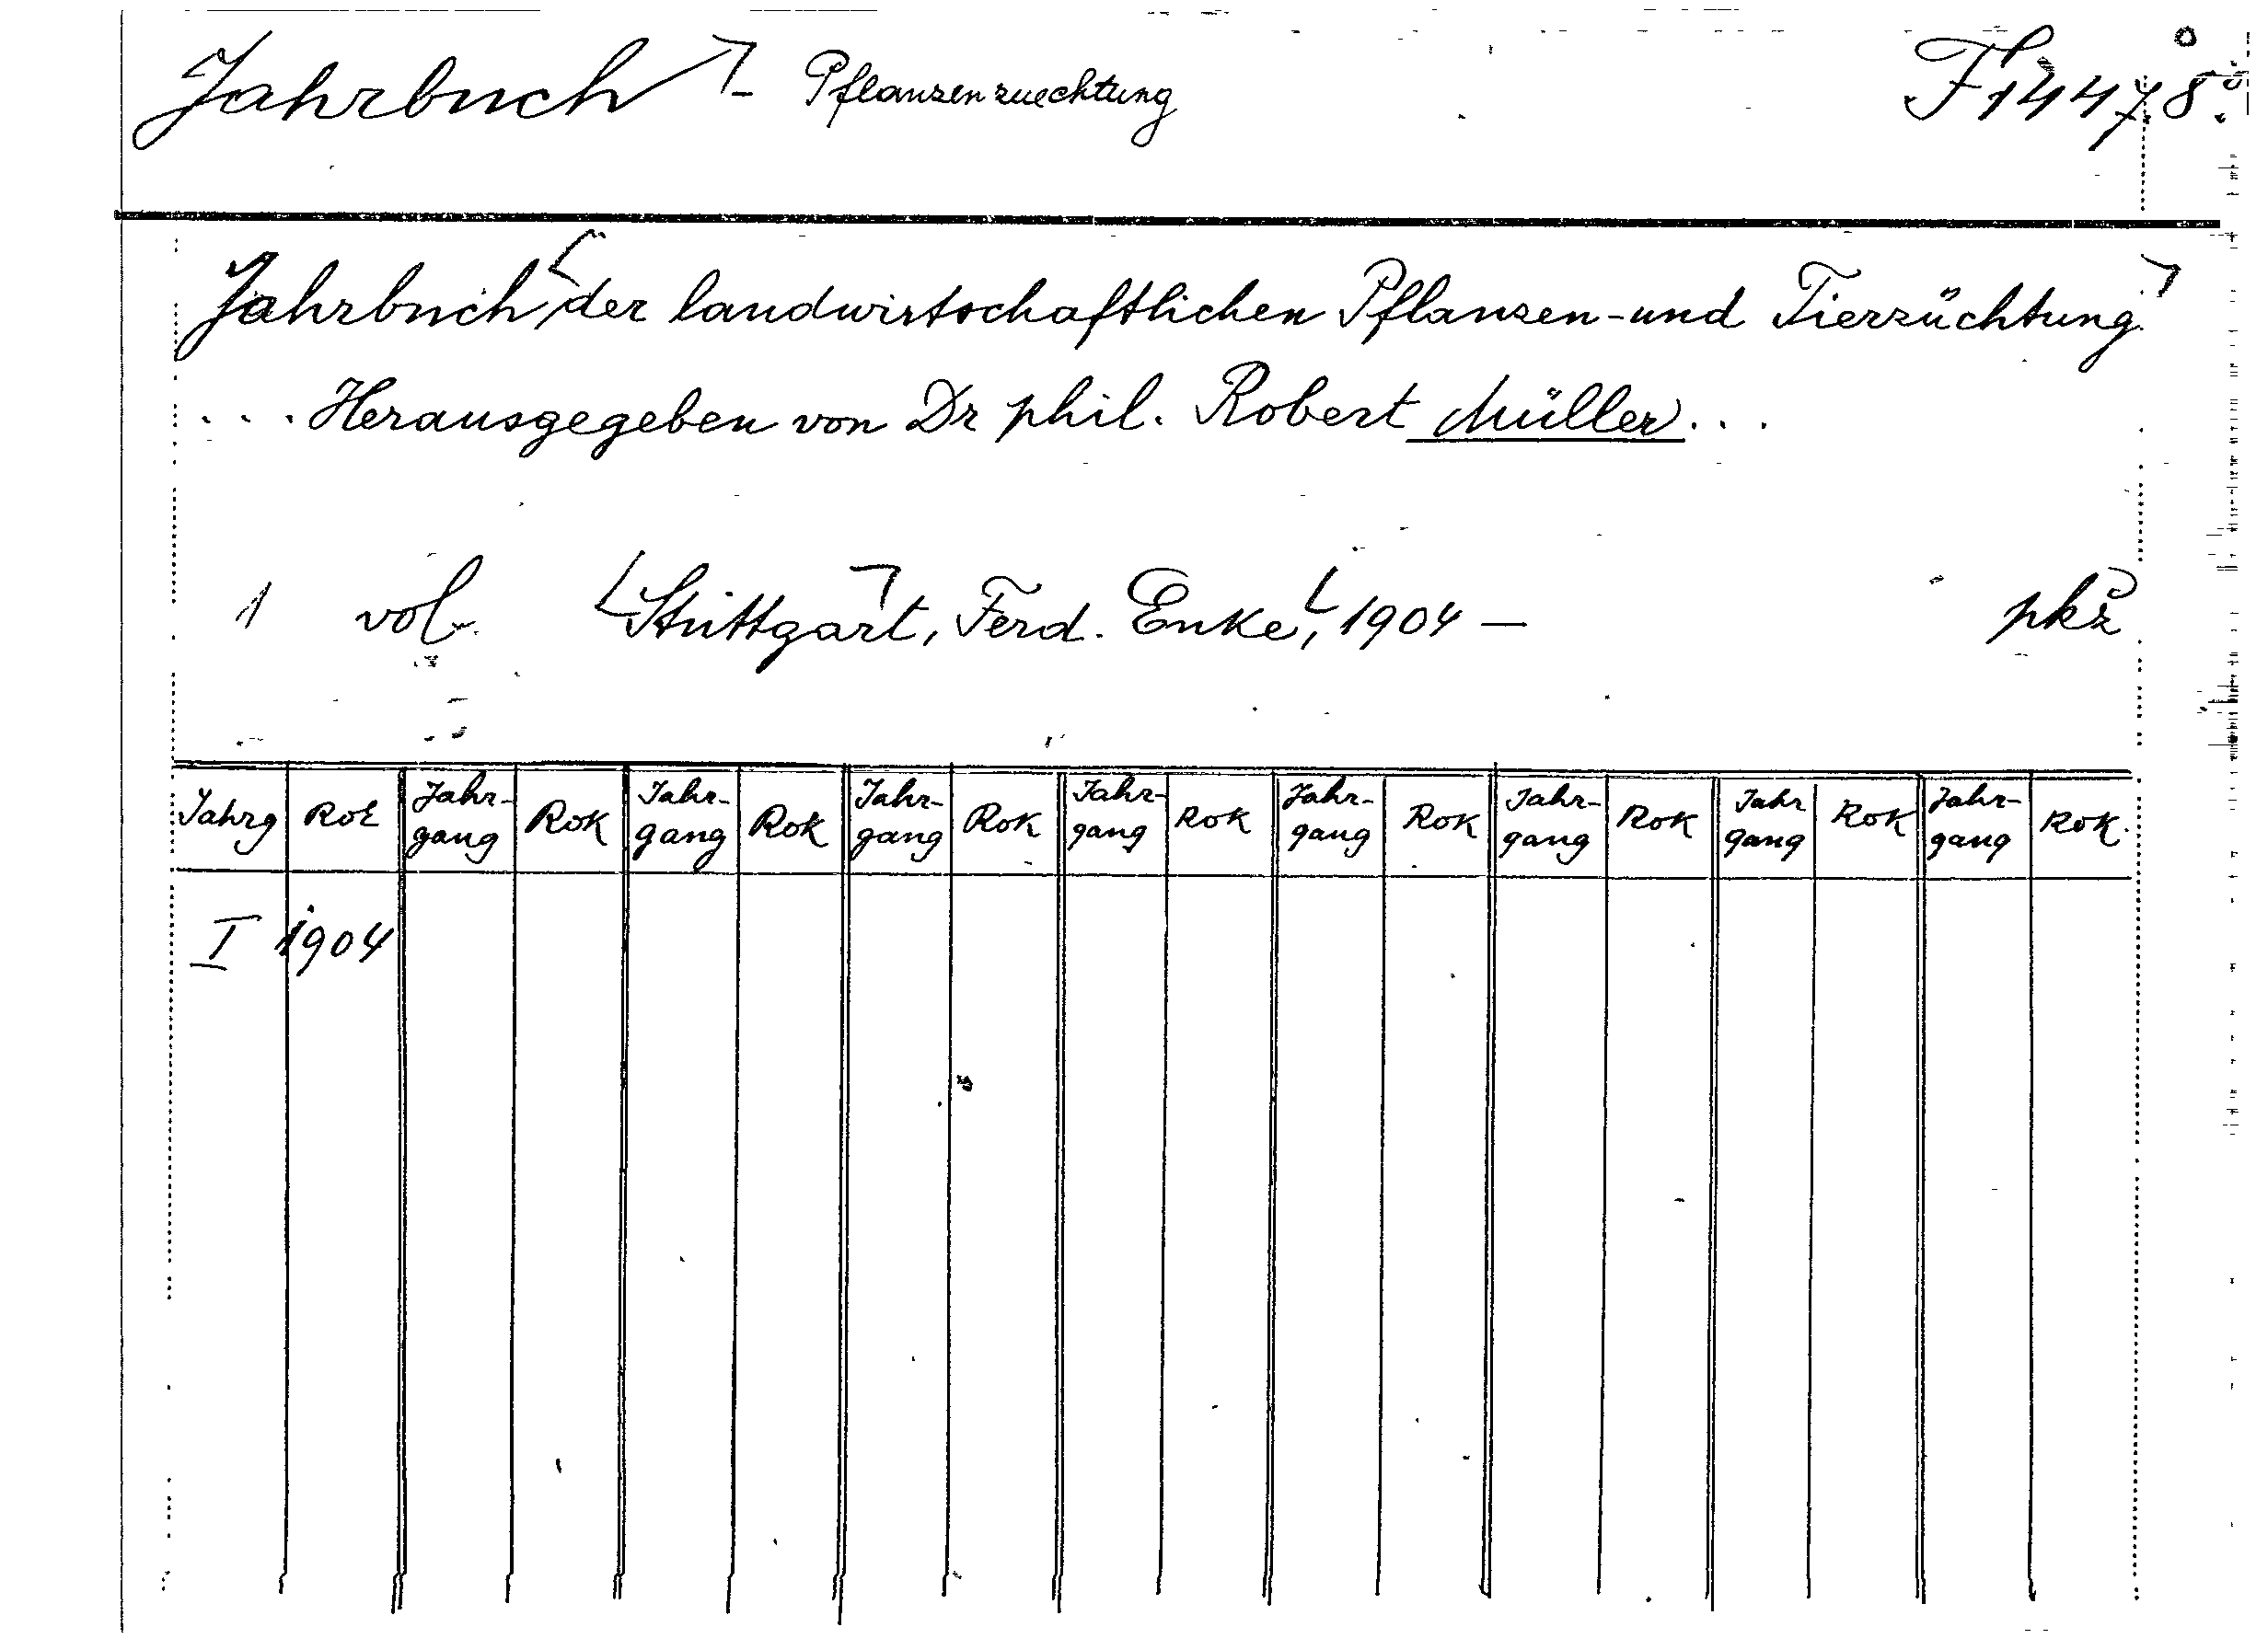 Jahrbuch - Pflanzenzuechtung F 14478
Jahrbuch der landwirtschaftlichen Pflanzen- und Tierzüchtung
... Herausgegeben von Dr phil. Robert Müller...
1 vol. Stuttgart, Ferd. Enke, 1904 — pkż
Jahrg Rok Jahr-gang Rok Jahr-gang Rok Jahr-gang Rok Jahr-gang Rok Jahr-gang Rok Jahr-gang Rok Jahr gang Rok Jahr-gang Rok.
I 1904